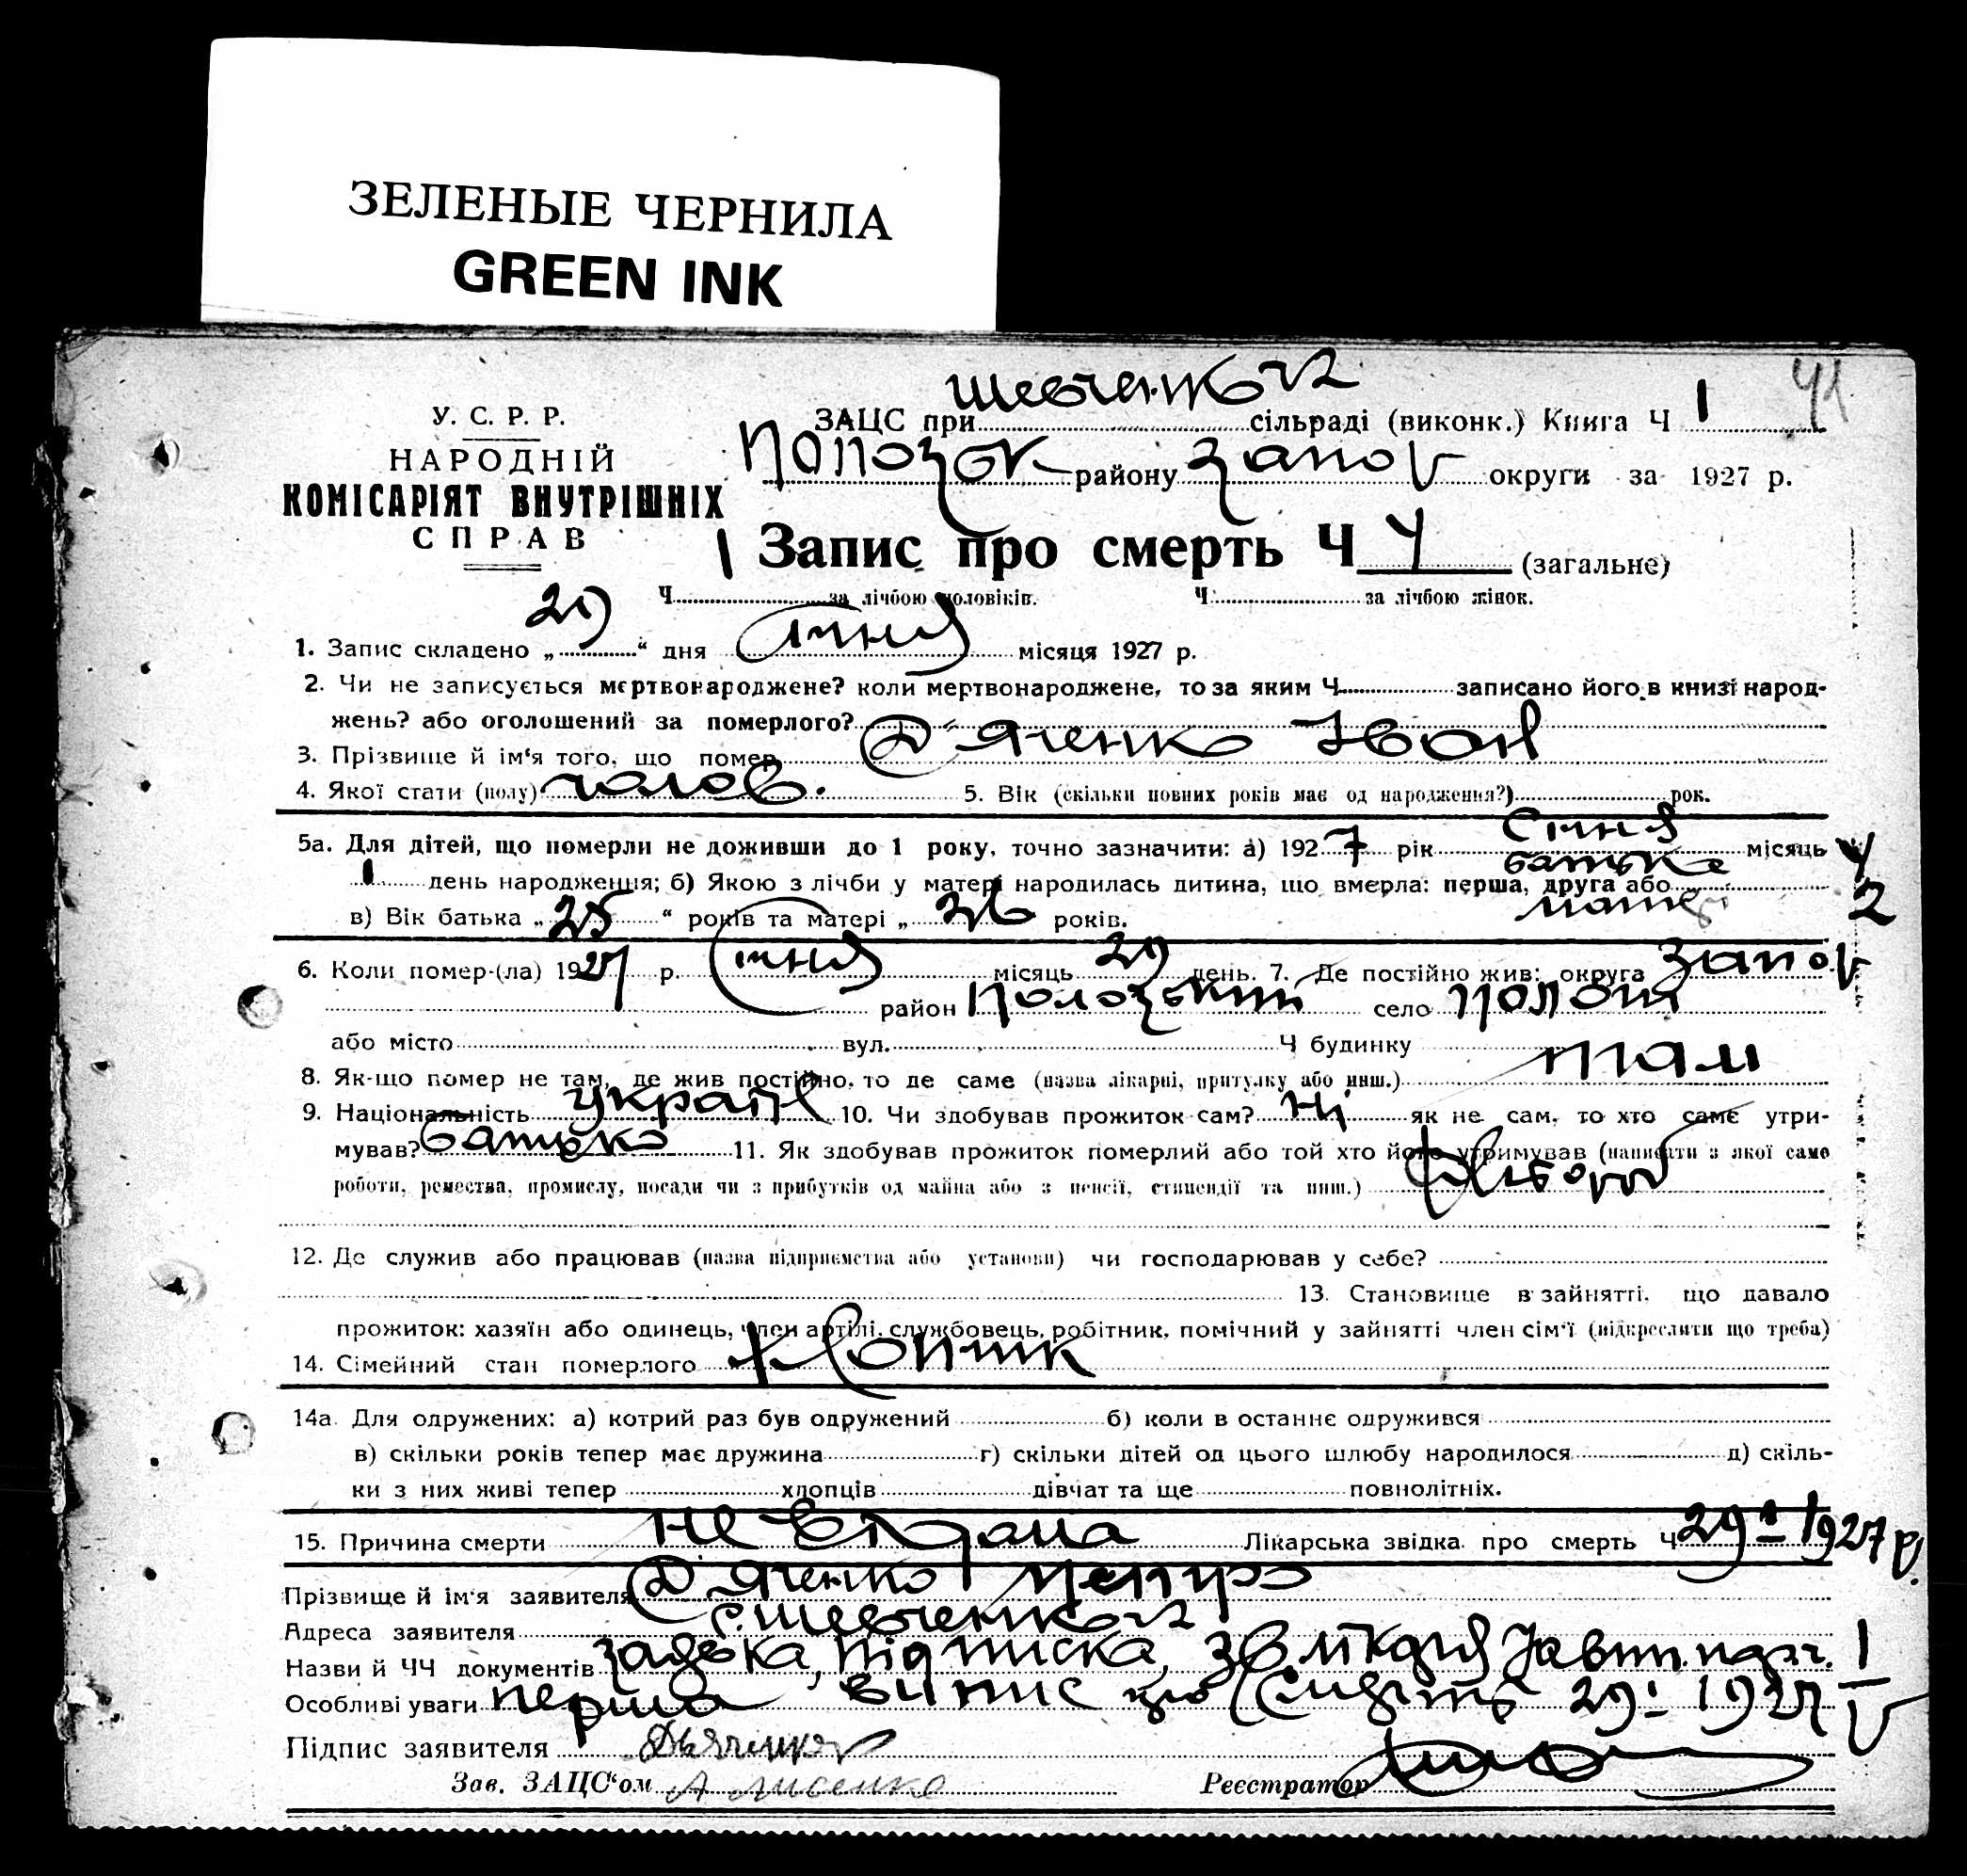 ЗЕЛЕНЫЕ ЧЕРНИЛА
GREEN INK
41
У. С. Р. Р.
НАРОДНІЙ
КОМІСАРІЯТ ВНУТРІШНІХ
СПРАВ
ЗАЦС при Шевченков сільраді (виконк.) Книга Ч 1
Полозьк району Запор округи за 1927 р.
1 Запис про смерть Ч 4 (загальне)
Ч за лічбою чоловіків. Ч за лічбою жінок.
1. Запис складено „ 29 “ дня січня місяця 1927 р.
2. Чи не записується мертвонароджене? коли мертвонароджене, то за яким Ч записано його в книзі народ-
жень? або оголошений за померлого?
3. Прізвище й ім‘я того, що помер Д'яченко Іван
4. Якої стати (полу) чолов. 5. Вік (скільки повних років має од народження?) рок.
5а. Для дітей, що померли не доживши до 1 року, точно зазначити: а) 1927 рік січня місяць
1 день народження; б) Якою з лічби у матері народилась дитина, що вмерла: перша, друга або батька 4
в) Вік батька „ 25 “ років та матері „ 26 років. матері 2
6. Коли помер-(ла) 1927 р. січня місяць 29 день. 7. Де постійно жив: округа Запор
район Полозький село Пологи
або місто вул. Ч будинку
8. Як-що помер не там, де жив постійно, то де саме (назва лікарні, притулку або инш.) там
9. Національність україн 10. Чи здобував прожиток сам? ні як не сам, то хто саме утри-
мував? батько 11. Як здобував прожиток померлий або той хто його утримував (написати з якої саме
роботи, ремества, промислу, посади чи з прибутків од майна або з пенсії, стипендії та инш.) хлібороб
12. Де служив або працював (назва підприємства або установи) чи господарював у себе?
13. Становище в зайнятті, що давало
прожиток: хазяїн або одинець, член артілі, службовець, робітник, помічний у зайнятті член сім‘ї (підкреслити що треба)
14. Сімейний стан померлого хлопчик
14а. Для одружених: а) котрий раз був одружений б) коли в останнє одружився
в) скільки років тепер має дружина г) скільки дітей од цього шлюбу народилося д) скіль-
ки з них живі тепер хлопців дівчат та ще повнолітніх.
15. Причина смерти не відома Лікарська звідка про смерть Ч 29 1 1927 р.
Прізвище й ім‘я заявителя Д'яченко Петро
Адреса заявителя с. Шевченков
Назви й ЧЧ документів заявка, підписка,
Особливі уваги перша випис про смерть 29 1 1927
Підпис заявителя Дьяченко
Зав. ЗАЦС‘ом А Лисенко Реєстратор